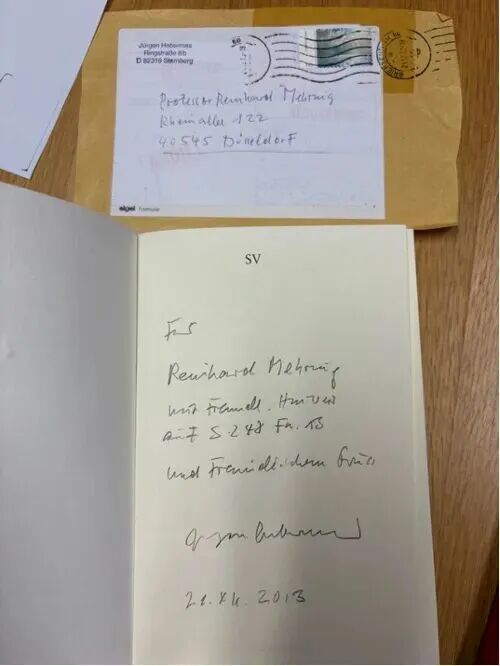 Jürgen Habermas
Ringstraße 8b
D 82319 Starnberg
Professor Reinhard Mehring
Rheinallee 122
40545 Düsseldorf
sigel Formular
SV
Für
Reinhard Mehring
mit freundl. Hinweis
auf S. 248 Fn. 15
und freundlichem Gruß
Jürgen Habermas
2013